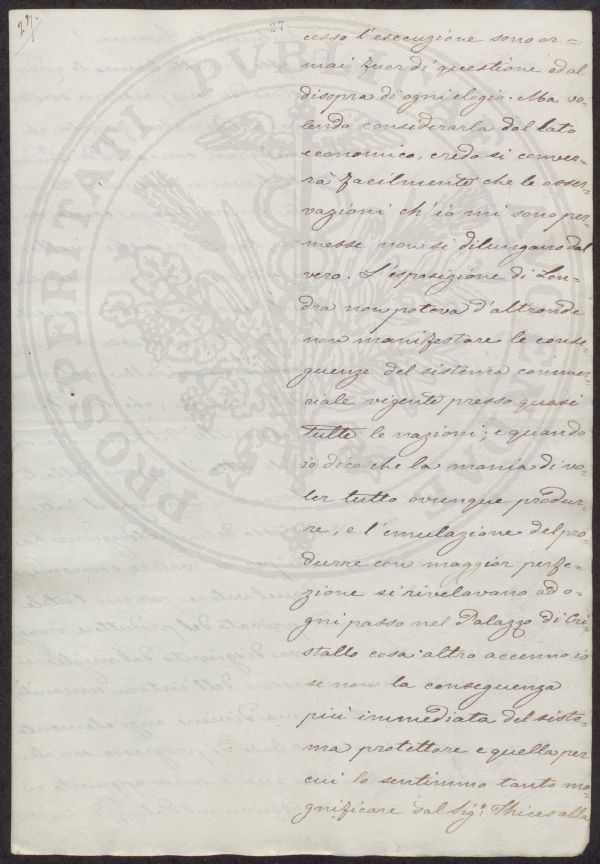 27.
27
cesso l'esecuzione sono or=
mai fuor di questione ed al
disopra di ogni elogio. Ma vo=
lendo considerarla dal lato
economico, credo si conver=
rà facilmente che le osser=
vazioni ch'io mi sono per=
messe non si dilungano dal
vero. L'esposizione di Lon=
dra non poteva d'altronde
non manifestare le conse=
guenze del sistema commer=
ciale vigente presso quasi
tutte le nazioni; e quando
io dico che la mania di vo=
ler tutto ovunque produr=
re, e l'emulazione del pro=
durre con maggior perfe=
zione si rivelavano ad o=
gni passo nel Palazzo di Cri=
stallo cosa altro accenno io
se non la conseguenza
più immediata del siste=
ma protettore e quella per
cui lo sentimmo tanto ma=
gnificare dal Sigr. Thiers alla
PROSPERITATI PUBLICAE AUGENDAE